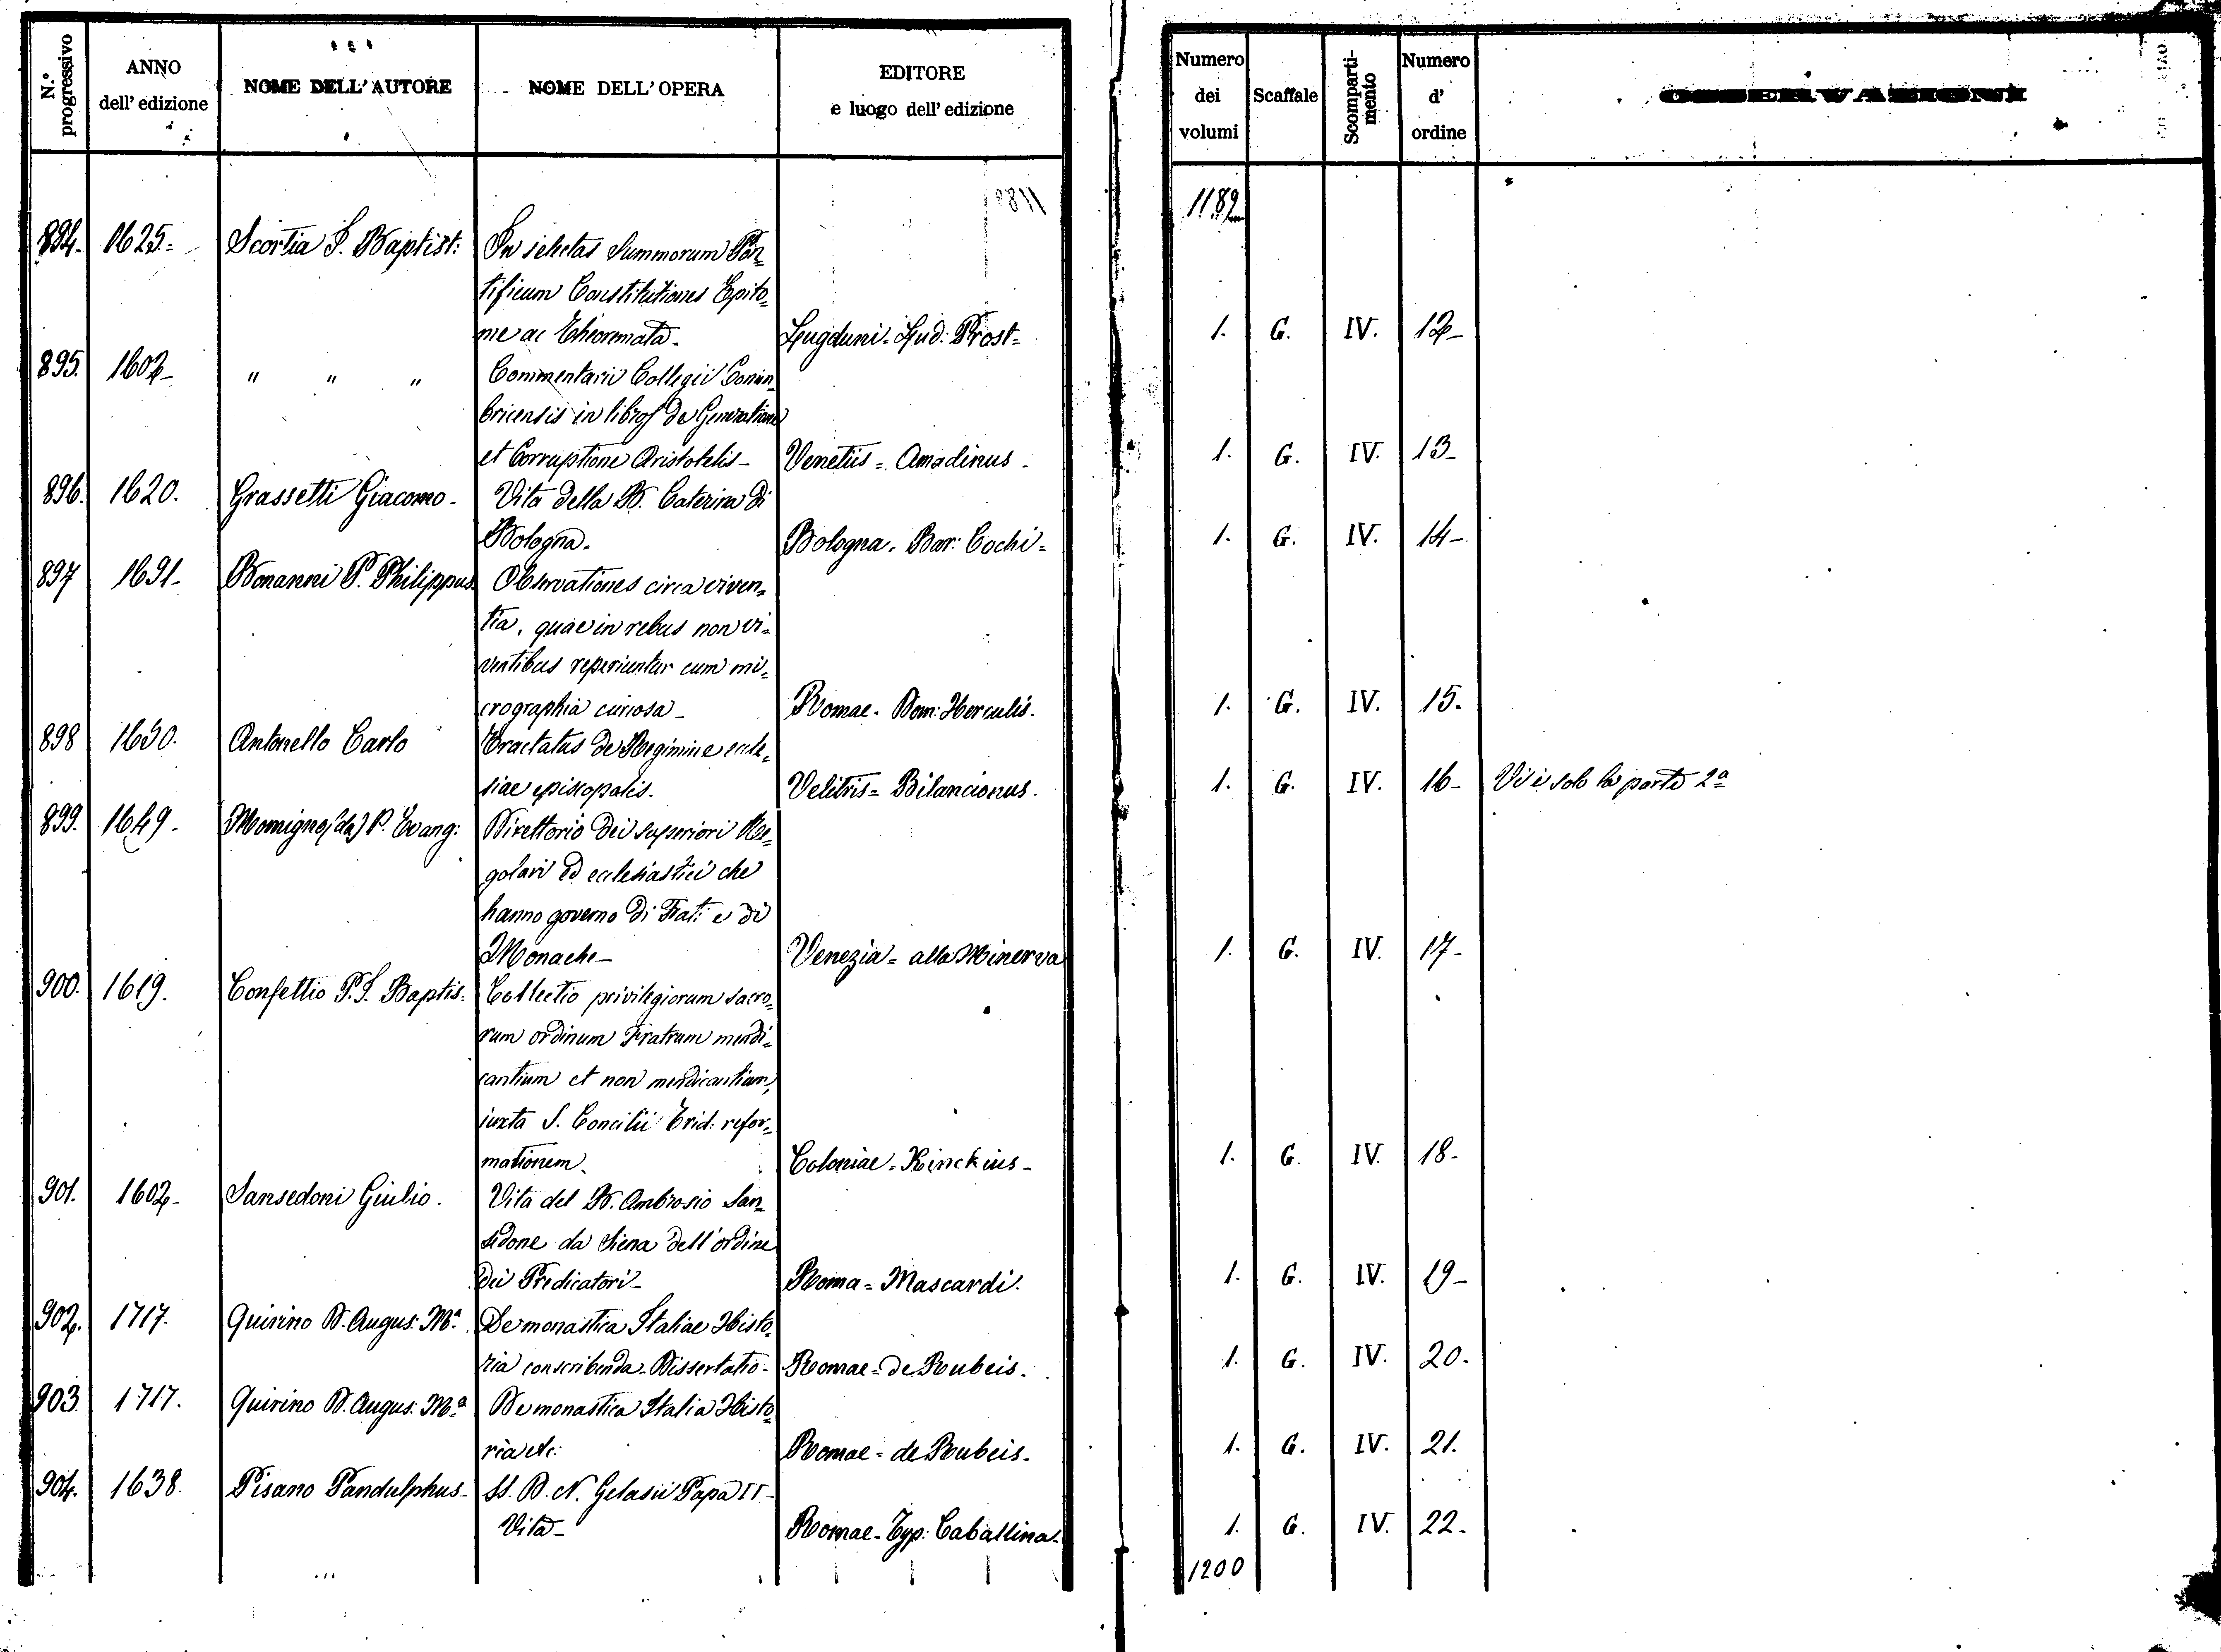 N.° progressivo
ANNO dell' edizione
NOME DELL' AUTORE
NOME DELL' OPERA
EDITORE e luogo dell' edizione
Numero dei volumi
Scaffale
Scomparti-mento
Numero d' ordine
OSSERVAZIONI
1189
894. 1625. Scortia J. Baptist: In selectas Summorum Pon=
tificum Constitutiones Epito=
me ac Theoremata. Lugduni. Lud: Prost= 1. G. IV. 12-
895. 1602- " " " Commentarii Collegii Conim=
bricensis in libros de Generatione
et Corruptione Aristotelis- Venetiis = Amadinus. 1. G. IV. 13-
896. 1620. Grassetti Giacomo. Vita della B. Caterina di
Bologna. Bologna. Bar: Cochi= 1. G. IV. 14-
897 1691- Bonanni P. Philippus Observationes circa viven=
tia, quae in rebus non vi=
ventibus reperiuntur cum mi=
crographia curiosa- Romae. Dom: Herculis. 1. G. IV. 15.
898 1650. Antonello Carlo Tractatus de Regimine eccle=
siae episcopalis. Velitris= Bilancionus. 1. G. IV. 16- Vi è solo la parte 2a
899. 1649. Momigno (da) P. Evang: Direttorio dei superiori Re=
golari ed ecclesiastici che
hanno governo di Frati e di
Monache- Venezia= alla Minerva 1. G. IV. 17-
900. 1619. Confettio P. J. Baptis: Collectio privilegiorum sacro=
rum ordinum Fratrum mendi=
cantium et non mendicantium,
iuxta S. Concilii Trid: refor=
mationem. Coloniae= Kinckius- 1. G. IV. 18-
901. 1602- Sansedoni Giulio. Vita del B. Ambrosio San=
sedone da Siena dell'ordine
dei Predicatori- Roma= Mascardi. 1. G. IV. 19-
902. 1717. Quirino D. Augus: Ma. De monastica Italiae Histo=
ria conscribenda. Dissertatio- Romae= de Rubeis. 1. G. IV. 20-
903. 1717. Quirino D. Augus: Ma De monastica Italia Histo=
ria etc: Romae= de Rubeis. 1. G. IV. 21.
904. 1638. Pisano Pandulphus- SS. D. N. Gelasii Papa II-
Vita- Romae- Typ: Caballina. 1. G. IV. 22-
1200